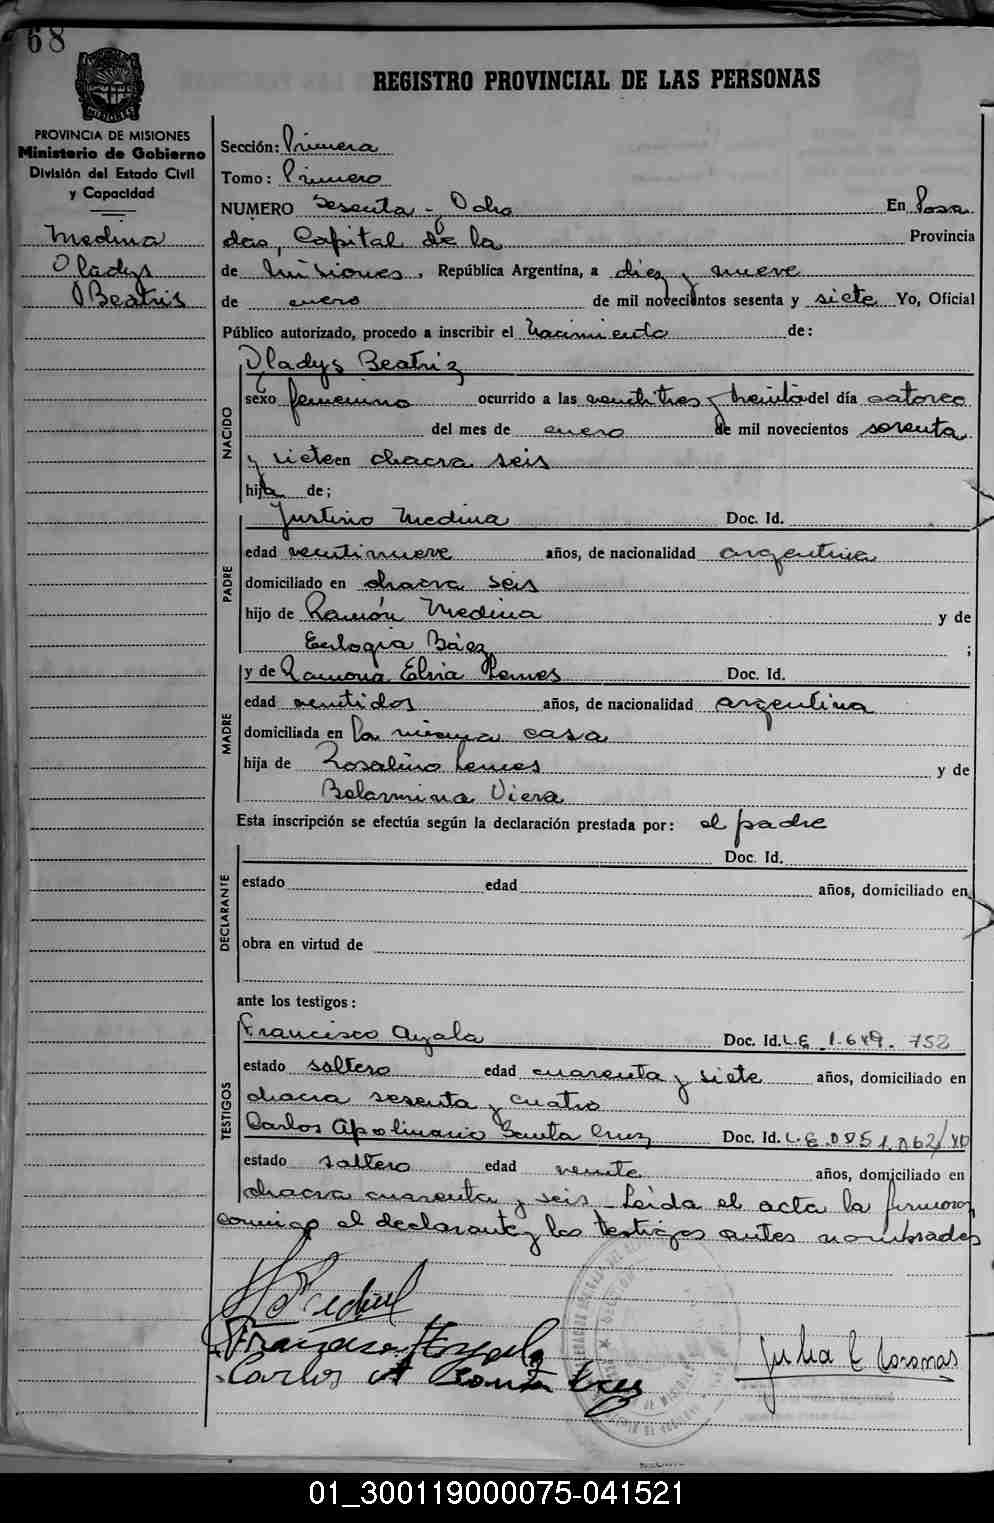 68
REGISTRO PROVINCIAL DE LAS PERSONAS
PROVINCIA DE MISIONES
Ministerio de Gobierno
División del Estado Civil
y Capacidad
Medina
Gladys
Beatris
Sección: Primera
Tomo: Primero
NUMERO Sesenta - Ocho En Posa
das, Capital de la Provincia
de Misiones, República Argentina, a diez y nueve
de enero de mil novecientos sesenta y siete Yo, Oficial
Público autorizado, procedo a inscribir el Nacimiento de:
NACIDO
Gladys Beatriz
sexo femenino ocurrido a las veintitres y treinta del día catorce
del mes de enero de mil novecientos sesenta
y siete en chacra seis
hija de;
PADRE
Justino Medina Doc. Id.
edad veintinueve años, de nacionalidad argentina
domiciliado en chacra seis
hijo de Ramón Medina y de
Eulogia Báez ;
MADRE
y de Ramona Elvia Lemes Doc. Id.
edad veintidos años, de nacionalidad argentina
domiciliada en la misma casa
hija de Rosalino Lemes y de
Belarmina Viera
Esta inscripción se efectúa según la declaración prestada por: el padre
DECLARANTE
Doc. Id.
estado edad años, domiciliado en
obra en virtud de
ante los testigos:
TESTIGOS
Francisco Ayala Doc. Id. L.E. 1.649.752
estado soltero edad cuarenta y siete años, domiciliado en
chacra sesenta y cuatro
Carlos Apolinario Santa Cruz Doc. Id. L.E.
estado soltero edad veinte años, domiciliado en
chacra cuarenta y seis. Leida el acta la firmaron
conmigo el declarante y los testigos antes nombrados
Francisco Ayala
Carlos A Santa Cruz
Julia E
01_300119000075-041521